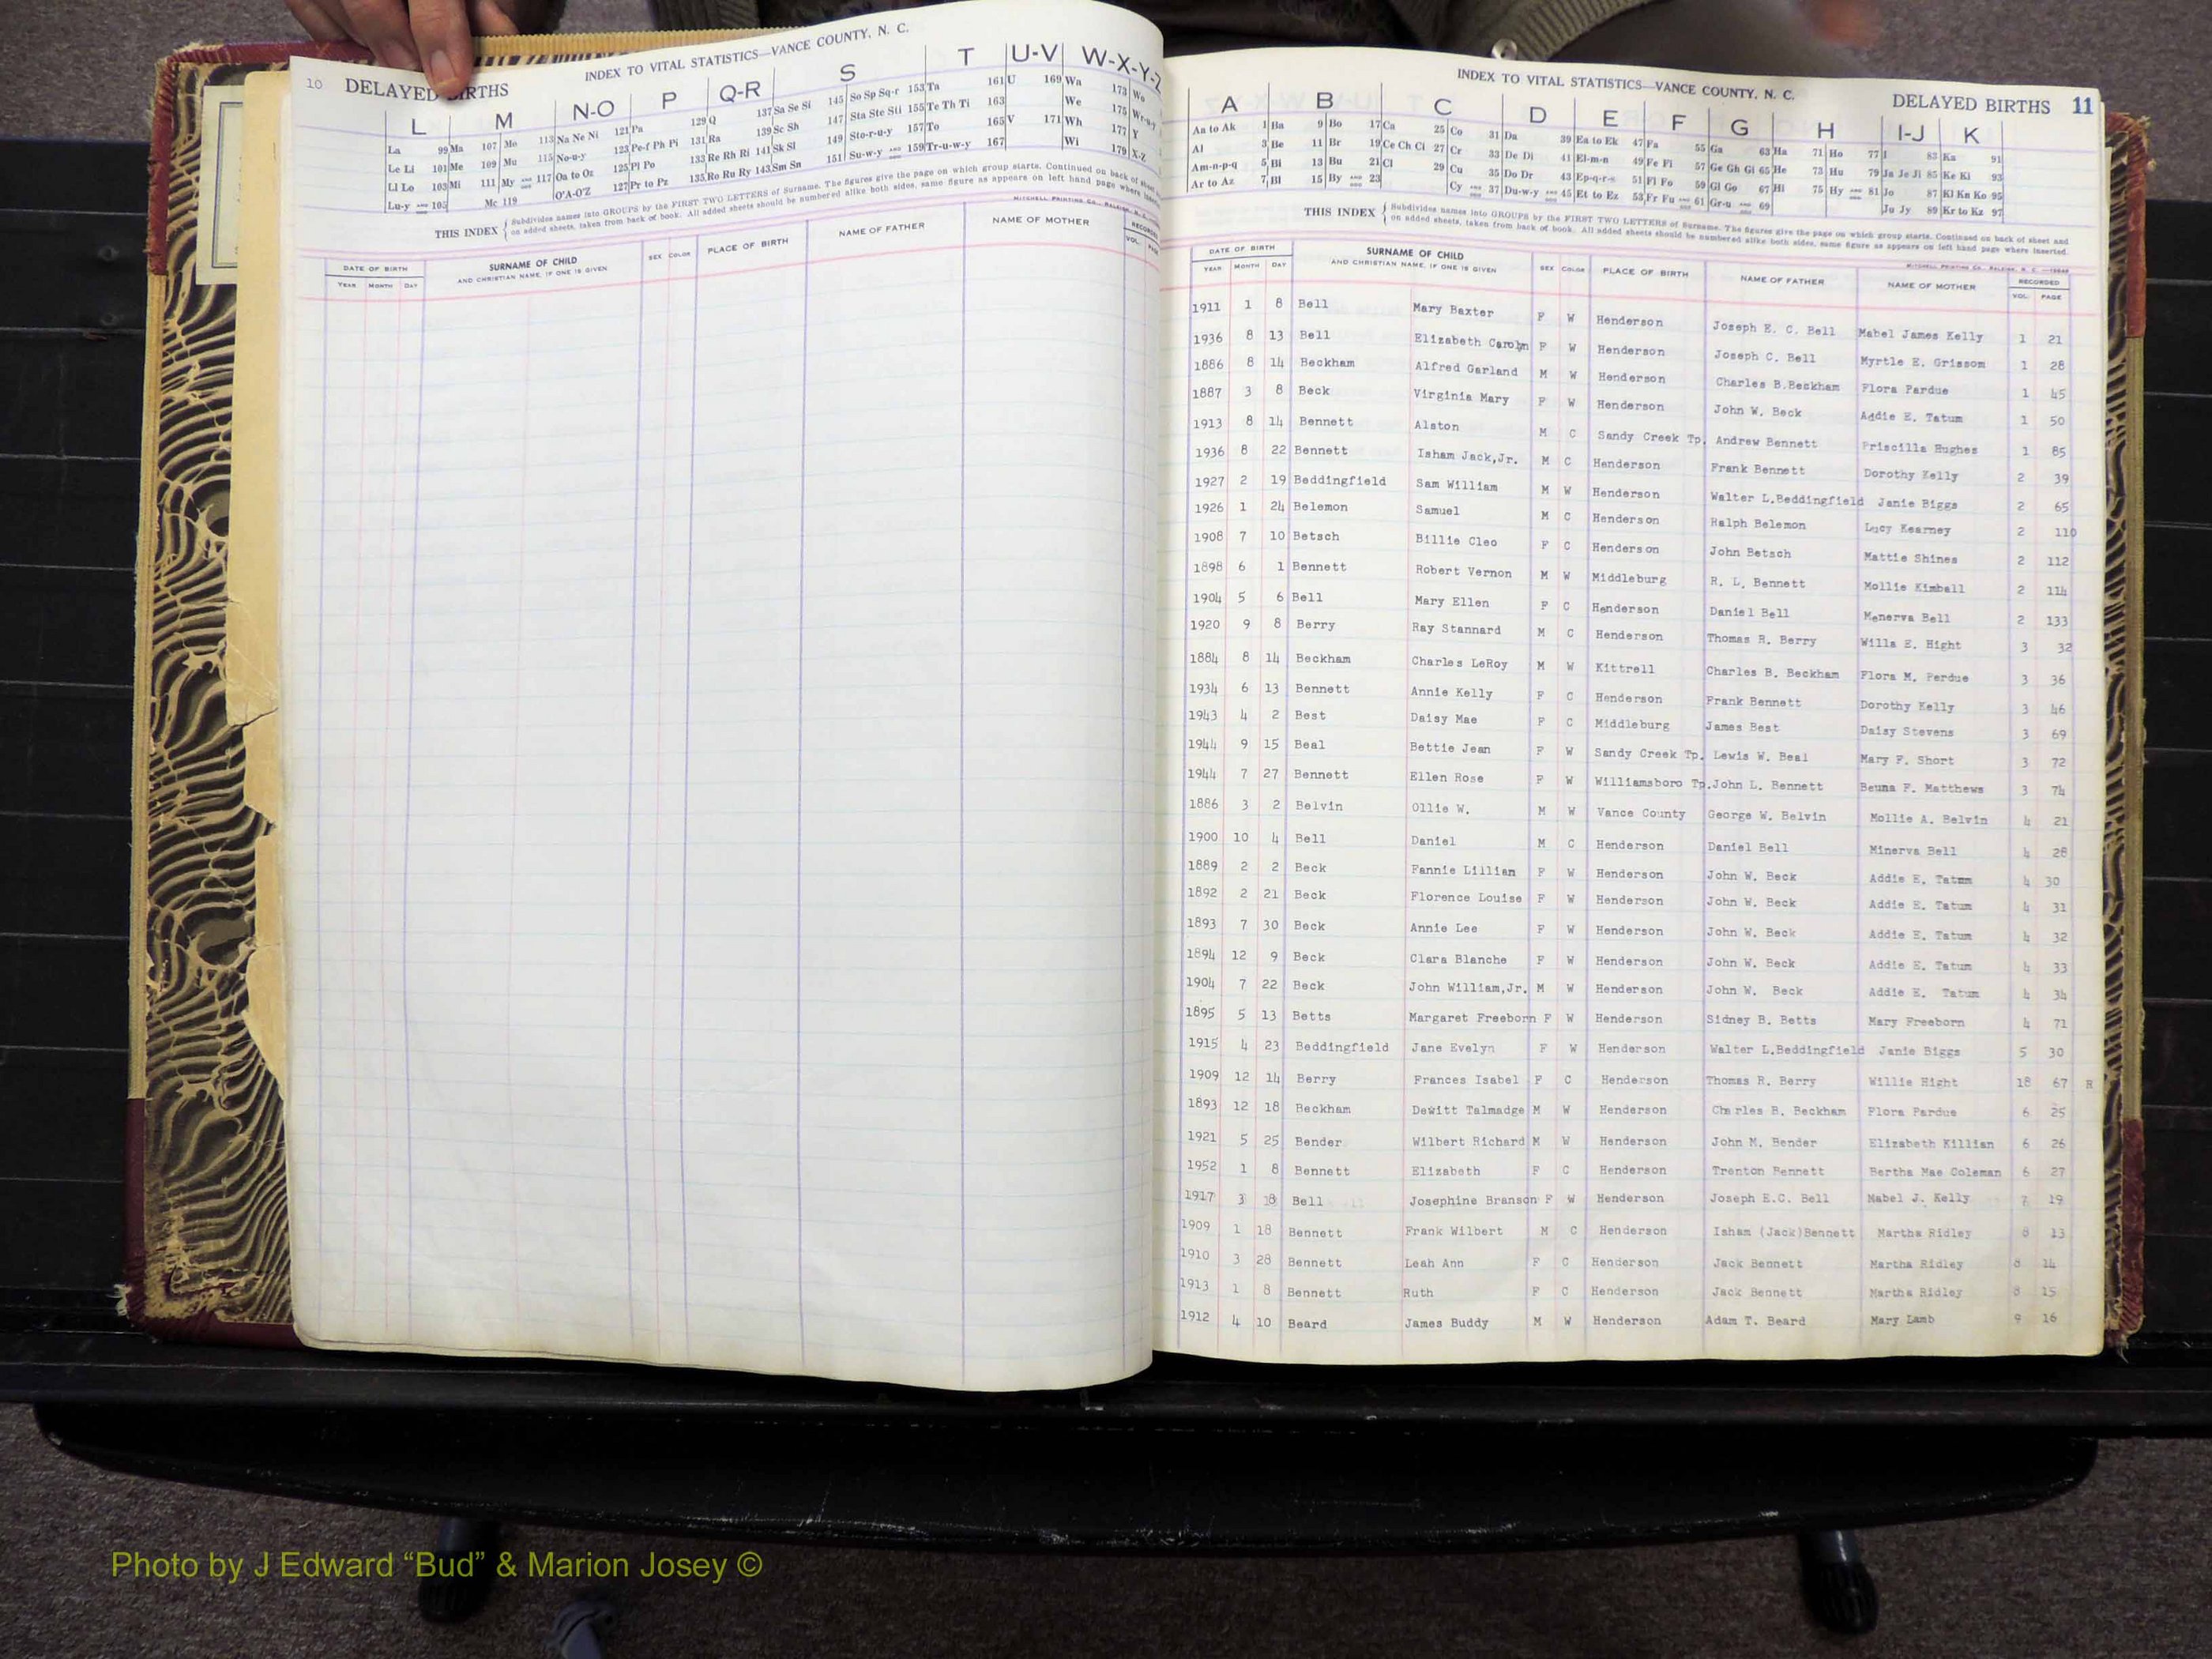 10 DELAYED BIRTHS INDEX TO VITAL STATISTICS—VANCE COUNTY, N. C.
L M N-O P Q-R S T U-V W-X-Y-Z
La 99 Ma 107 Mo 113 Na Ne Ni 121 Pa 129 Q 137 Sa Se Si 145 So Sp Sq-r 153 Ta 161 U 169 Wa 173 Wo
Le Li 101 Me 109 Mu 115 No-u-y 123 Pe-f Ph Pi 131 Ra 139 Sc Sh 147 Sta Ste Sti 155 Te Th Ti 163 We 175 Wr-u-y
Ll Lo 103 Mi 111 My AND 117 Oa to Oz 125 Pl Po 133 Re Rh Ri 141 Sk Sl 149 Sto-r-u-y 157 To 165 V 171 Wh 177 Y
Lu-y AND 105 Mc 119 O'A-O'Z 127 Pr to Pz 135 Ro Ru Ry 143 Sm Sn 151 Su-w-y AND 159 Tr-u-w-y 167 Wi 179 X-Z
THIS INDEX { Subdivides names into GROUPS by the FIRST TWO LETTERS of Surname. The figures give the page on which group starts. Continued on back of
on added sheets, taken from back of book. All added sheets should be numbered alike both sides, same figure as appears on left hand page where inserted
MITCHELL PRINTING CO., RALEIGH, N. C.
DATE OF BIRTH SURNAME OF CHILD SEX COLOR PLACE OF BIRTH NAME OF FATHER NAME OF MOTHER RECORDED
YEAR MONTH DAY AND CHRISTIAN NAME, IF ONE IS GIVEN VOL. PAGE
INDEX TO VITAL STATISTICS—VANCE COUNTY, N. C. DELAYED BIRTHS 11
A B C D E F G H I-J K
Aa to Ak 1 Ba 9 Bo 17 Ca 25 Co 31 Da 39 Ea to Ek 47 Fa 55 Ga 63 Ha 71 Ho 77 I 83 Ka 91
Al 3 Be 11 Br 19 Ce Ch Ci 27 Cr 33 De Di 41 El-m-n 49 Fe Fi 57 Ge Gh Gi 65 He 73 Hu 79 Ja Je Ji 85 Ke Ki 93
Am-n-p-q 5 Bi 13 Bu 21 Cl 29 Cu 35 Do Dr 43 Ep-q-r-s 51 Fl Fo 59 Gl Go 67 Hi 75 Hy AND 81 Jo 87 Kl Kn Ko 95
Ar to Az 7 Bl 15 By AND 23 Cy AND 37 Du-w-y AND 45 Et to Ez 53 Fr Fu AND 61 Gr-u AND 69 Ju Jy 89 Kr to Kz 97
THIS INDEX { Subdivides names into GROUPS by the FIRST TWO LETTERS of Surname. The figures give the page on which group starts. Continued on back of sheet and
on added sheets, taken from back of book. All added sheets should be numbered alike both sides, same figure as appears on left hand page where inserted.
MITCHELL PRINTING CO., RALEIGH, N. C.
DATE OF BIRTH SURNAME OF CHILD SEX COLOR PLACE OF BIRTH NAME OF FATHER NAME OF MOTHER RECORDED
YEAR MONTH DAY AND CHRISTIAN NAME, IF ONE IS GIVEN VOL. PAGE
1911 1 8 Bell Mary Baxter F W Henderson Joseph E. C. Bell Mabel James Kelly 1 21
1936 8 13 Bell Elizabeth Carolyn F W Henderson Joseph C. Bell Myrtle E. Grissom 1 28
1886 8 14 Beckham Alfred Garland M W Henderson Charles B.Beckham Flora Pardue 1 45
1887 3 8 Beck Virginia Mary F W Henderson John W. Beck Addie E. Tatum 1 50
1913 8 14 Bennett Alston M C Sandy Creek Tp. Andrew Bennett Priscilla Hughes 1 85
1936 8 22 Bennett Isham Jack,Jr. M C Henderson Frank Bennett Dorothy Kelly 2 39
1927 2 19 Beddingfield Sam William M W Henderson Walter L.Beddingfield Janie Biggs 2 65
1926 1 24 Belemon Samuel M C Henderson Ralph Belemon Lucy Kearney 2 110
1908 7 10 Betsch Billie Cleo F C Henderson John Betsch Mattie Shines 2 112
1898 6 1 Bennett Robert Vernon M W Middleburg R. L. Bennett Mollie Kimball 2 114
1904 5 6 Bell Mary Ellen F C Henderson Daniel Bell Menerva Bell 2 133
1920 9 8 Berry Ray Stannard M C Henderson Thomas R. Berry Willa E. Hight 3 32
1884 8 14 Beckham Charles LeRoy M W Kittrell Charles B. Beckham Flora M. Perdue 3 36
1934 6 13 Bennett Annie Kelly F C Henderson Frank Bennett Dorothy Kelly 3 46
1943 4 2 Best Daisy Mae F C Middleburg James Best Daisy Stevens 3 69
1944 9 15 Beal Bettie Jean F W Sandy Creek Tp. Lewis W. Beal Mary F. Short 3 72
1944 7 27 Bennett Ellen Rose F W Williamsboro Tp. John L. Bennett Beuna F. Matthews 3 74
1886 3 2 Belvin Ollie W. M W Vance County George W. Belvin Mollie A. Belvin 4 21
1900 10 4 Bell Daniel M C Henderson Daniel Bell Minerva Bell 4 28
1889 2 2 Beck Fannie Lillian F W Henderson John W. Beck Addie E. Tatum 4 30
1892 2 21 Beck Florence Louise F W Henderson John W. Beck Addie E. Tatum 4 31
1893 7 30 Beck Annie Lee F W Henderson John W. Beck Addie E. Tatum 4 32
1894 12 9 Beck Clara Blanche F W Henderson John W. Beck Addie E. Tatum 4 33
1904 7 22 Beck John William,Jr. M W Henderson John W. Beck Addie E. Tatum 4 34
1895 5 13 Betts Margaret Freeborn F W Henderson Sidney B. Betts Mary Freeborn 4 71
1915 4 23 Beddingfield Jane Evelyn F W Henderson Walter L.Beddingfield Janie Biggs 5 30
1909 12 14 Berry Frances Isabel F C Henderson Thomas R. Berry Willie Hight 18 67 R
1893 12 18 Beckham Dewitt Talmadge M W Henderson Charles B. Beckham Flora Pardue 6 25
1921 5 25 Bender Wilbert Richard M W Henderson John M. Bender Elizabeth Killian 6 26
1952 1 8 Bennett Elizabeth F C Henderson Trenton Bennett Bertha Mae Coleman 6 27
1917 3 18 Bell Josephine Branson F W Henderson Joseph E.C. Bell Mabel J. Kelly 7 19
1909 1 18 Bennett Frank Wilbert M C Henderson Isham (Jack)Bennett Martha Ridley 8 13
1910 3 28 Bennett Leah Ann F C Henderson Jack Bennett Martha Ridley 8 14
1913 1 8 Bennett Ruth F C Henderson Jack Bennett Martha Ridley 8 15
1912 4 10 Beard James Buddy M W Henderson Adam T. Beard Mary Lamb 9 16
Photo by J Edward “Bud” & Marion Josey ©